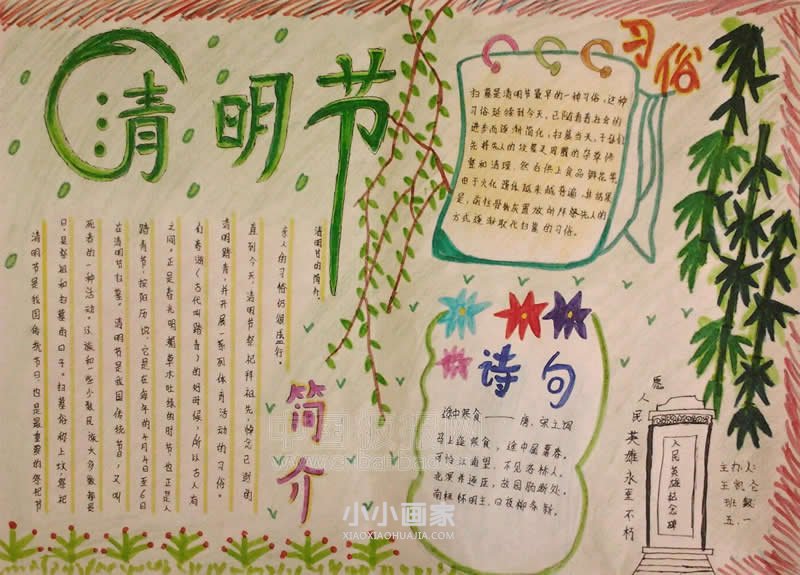 清明节
清明节的简介:
清明节是我国传统节日,也是最重要的祭祀节
日,是祭祖和扫墓的日子。扫墓俗称上坟,祭祀
死者的一种活动。汉族和一些少数民族大多都是
在清明节扫墓。清明节是我国传统节日,又叫
踏青节,按阳历说,它是在每年的4月4日至6日
之间,正是春光明媚草木吐绿的时节,也正是人
们春游(古代叫踏青)的好时候,所以古人有
清明踏青,并开展一系列体育活动的习俗。
直到今天,清明节祭祀拜祖先,悼念已逝的
亲人的习俗仍很盛行。
简介
习俗
扫墓是清明节最早的一种习俗,这种
习俗延续到今天,已随着社会的
进步而逐渐简化,扫墓当天,子孙们
先将先人的坟墓及周围的杂草修
整和清理,然后供上食品鲜花等,
由于火化遗体越来越普遍,其结果
是,前往骨灰置放地拜祭先人的
方式逐渐取代扫墓的习俗。
诗句
途中寒食——唐·宋之问
马上逢寒食,途中属暮春。
可怜江浦望,不见洛桥人。
逐臣,故园肠断处。
怀明主,日夜柳条新。
愿人民英雄永垂不朽
人民英雄纪念碑
主办人:
王凯
班
五、一
小小画家
XIAOXIAOHUAJIA.COM